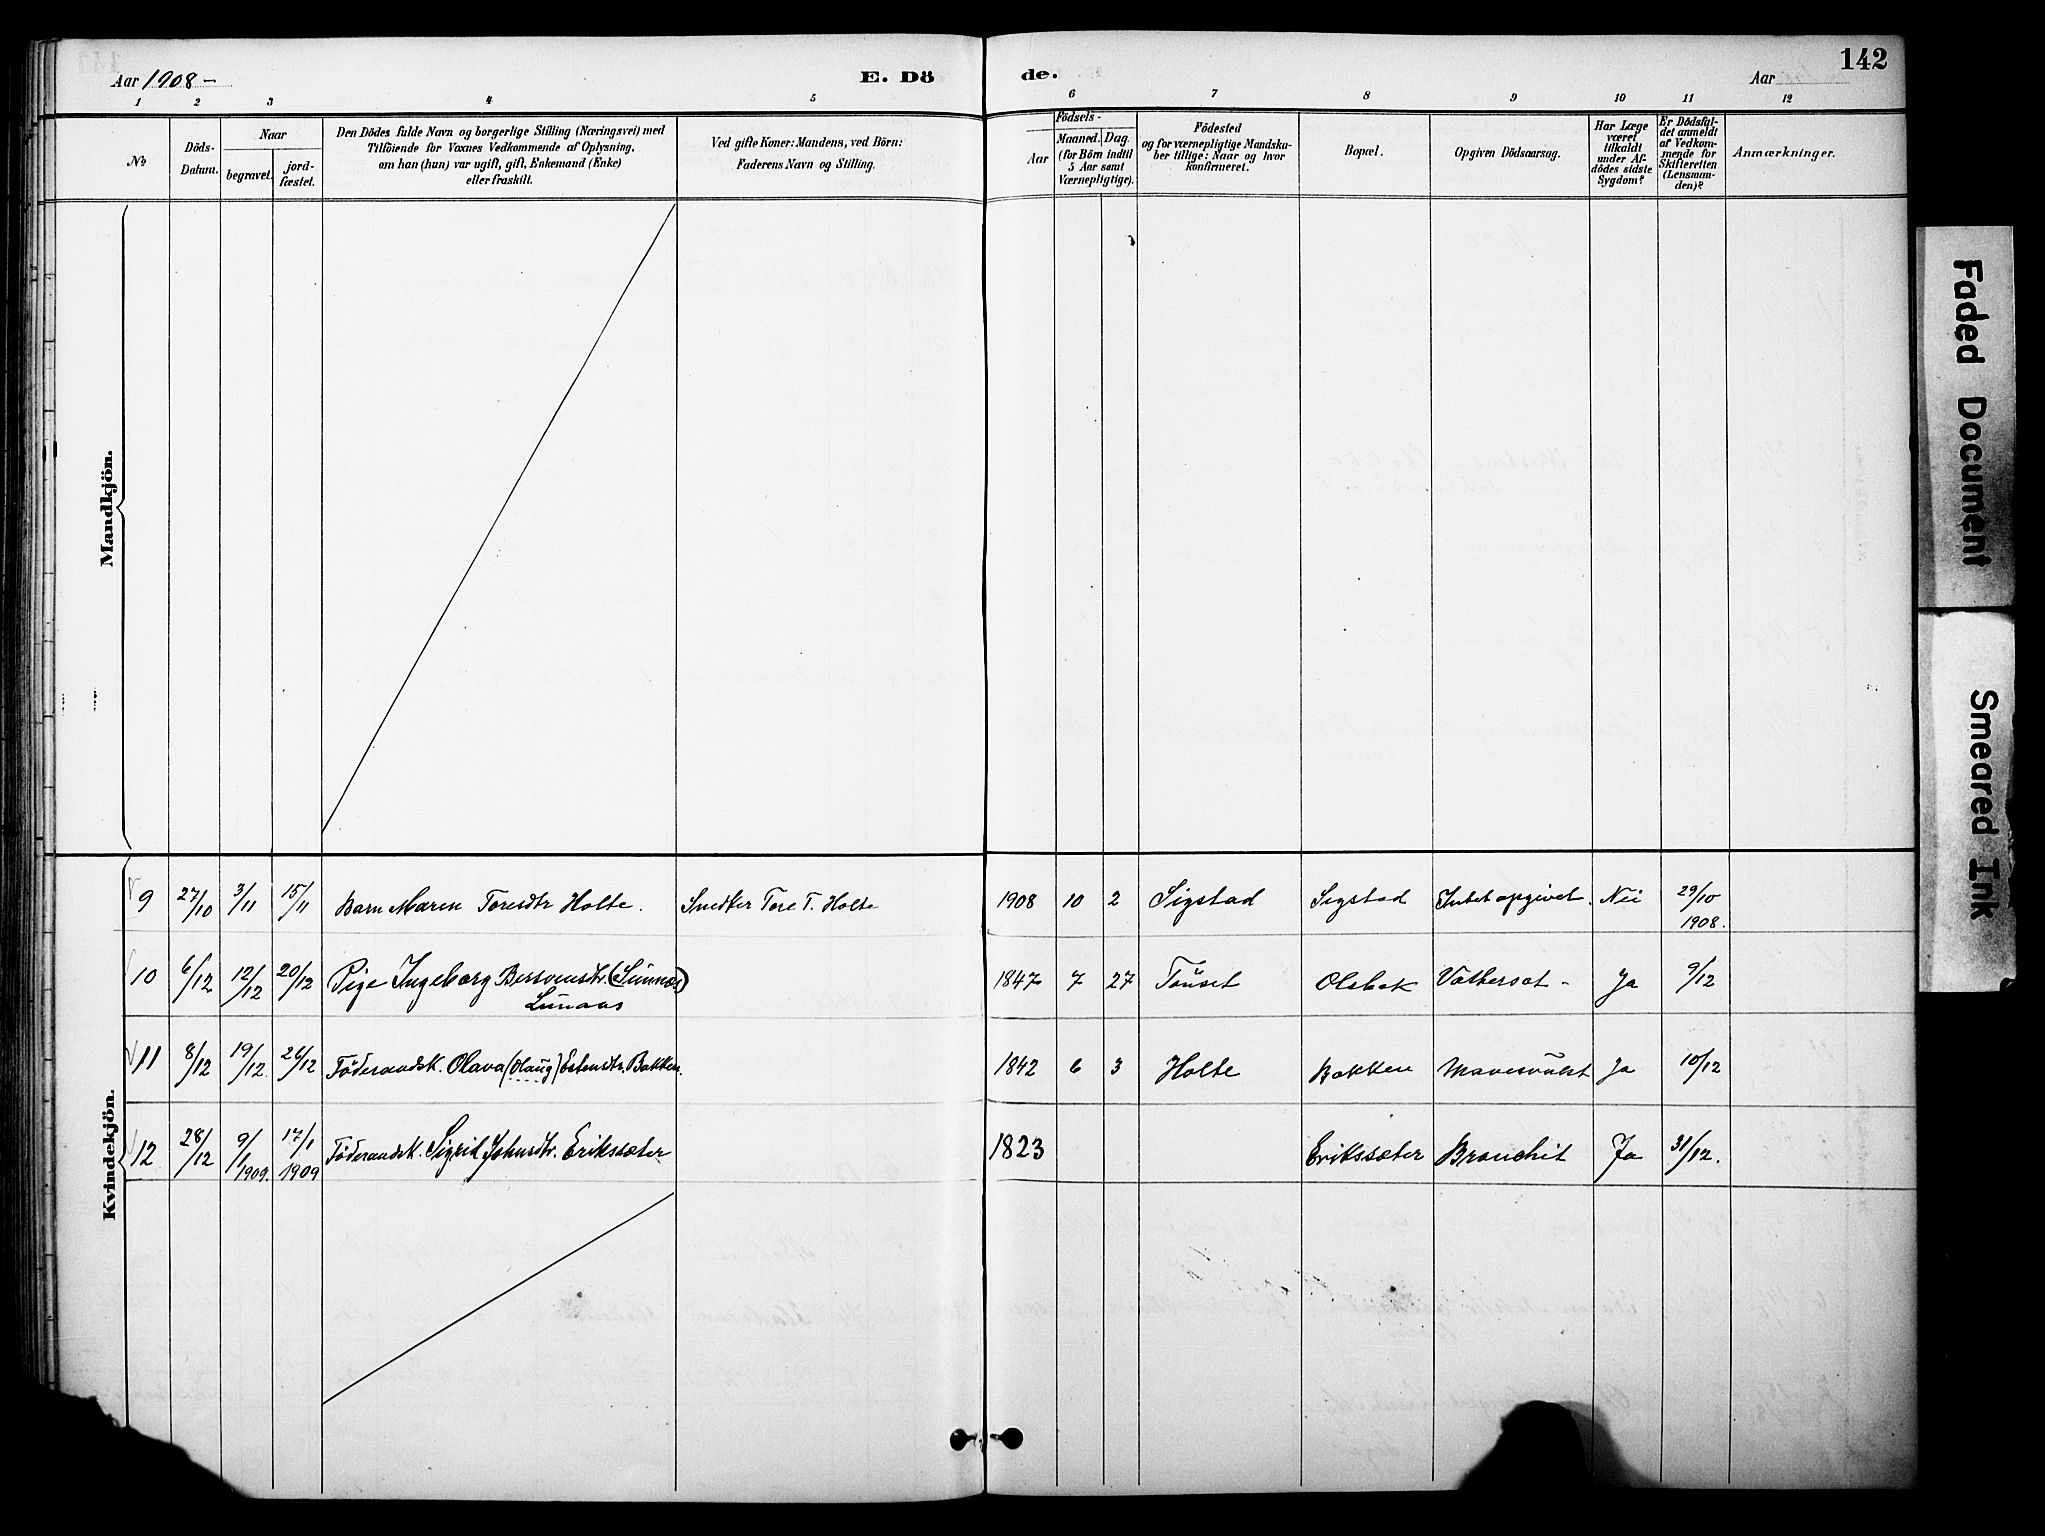 Aar 1908 –
E. Dö
de.
Aar
142
1 2 3 4 5 6 7 8 9 10 11 12
No
Döds-
Datum.
Naar
begravet.
jord-
fæstet.
Den Dödes fulde Navn og borgerlige Stilling (Næringsvei) med
Tilföiende for Voxnes Vedkommende af Oplysning,
om han (hun) var ugift, gift, Enkemand (Enke)
eller fraskilt.
Ved gifte Koner: Mandens, ved Börn:
Faderens Navn og Stilling.
Födsels-
Aar
Maaned. Dag.
(for Börn indtil
5 Aar samt
Værnepligtige).
Födested
og for værnepligtige Mandska-
ber tillige: Naar og hvor
konfirmeret.
Bopæl.
Opgiven Dödsaarsag.
Har Læge
været
tilkaldt
under Af-
dödes sidste
Sygdom?
Er Dödsfal-
det anmeldt
af Vedkom-
mende for
Skifteretten
(Lensman-
den)?
Anmærkninger.
Mandkjön.
Kvindekjön.
9 27/10 3/11 15/11 Barn Maren Toresdtr Holte. Snedker Tore T. Holte 1908 10 2 Sigstad Sigstad Intet opgivet. Nei 29/10
1908.
10 6/12 12/12 20/12 Pige Ingeborg Bersvensdtr. (Sünnæs) 1847 7 27 Tönset Olsbak Vattersot - Ja 9/12
Lunaas
11 8/12 19/12 26/12 Föderaadsk. Olava (Olaug) Estensdtr. Bakken. 1842 6 3 Holte Bakken Mavesvülst Ja 10/12
12 28/12 9/1 1909. 17/1 1909 Föderaadsk. Sigrid Johnsdtr. Erikssæter 1823 Erikssæter Bronchit Ja 31/12.
Faded Document
Smeared Ink